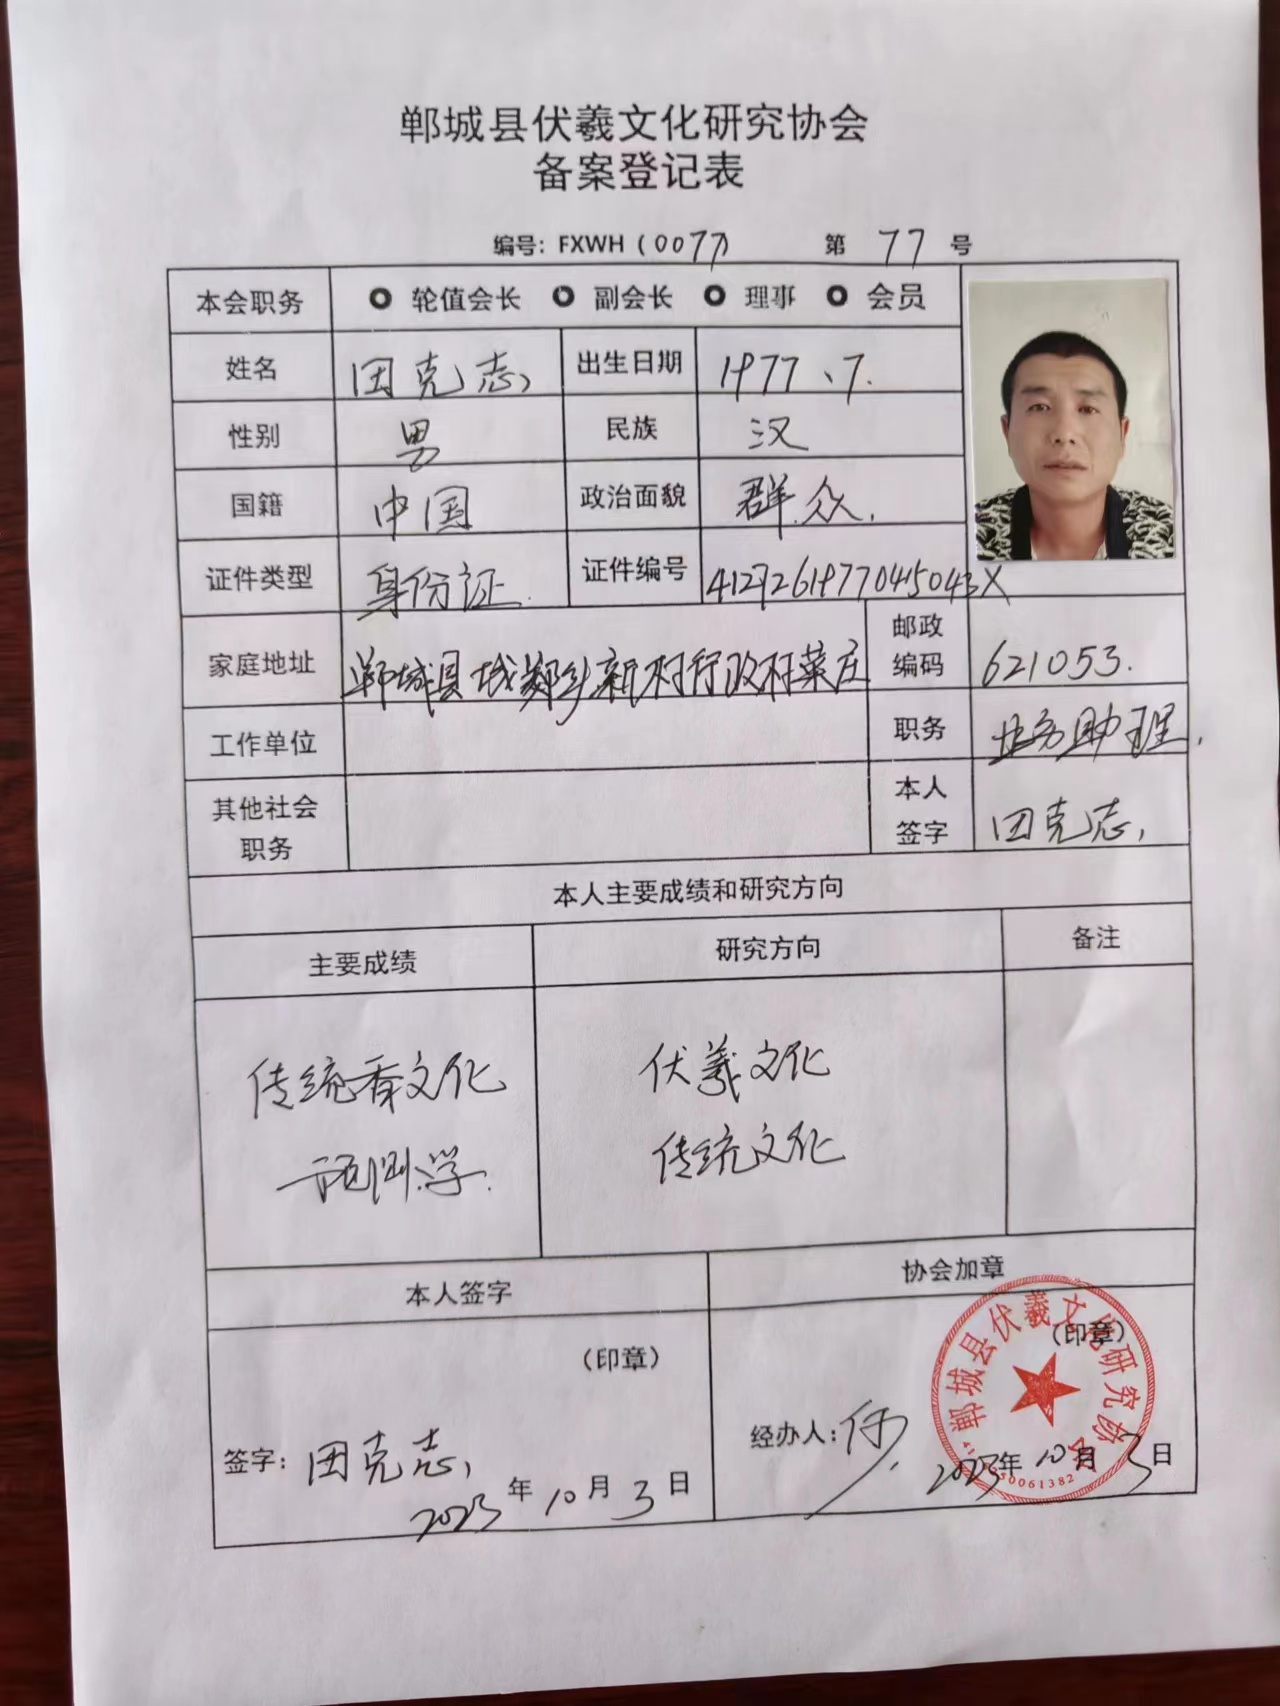 郸城县伏羲文化研究协会
备案登记表
编号: FXWH (0077) 第 77 号
本会职务 轮值会长 副会长 理事 会员
姓名 田克志 出生日期 1977、7.
性别 男 民族 汉
国籍 中国 政治面貌 群众.
证件类型 身份证. 证件编号 41272619770415043X
家庭地址 郸城县城郊乡新村行政村菜庄 邮政编码 621053.
工作单位 职务 业务助理.
其他社会职务 本人签字 田克志,
本人主要成绩和研究方向
主要成绩 研究方向 备注
传统香文化 伏羲文化
预测学. 传统文化
本人签字 协会加章
(印章) (印章)
郸城县伏羲文化研究协会
签字: 田克志, 经办人:
2023年10月3日 2023年10月3日